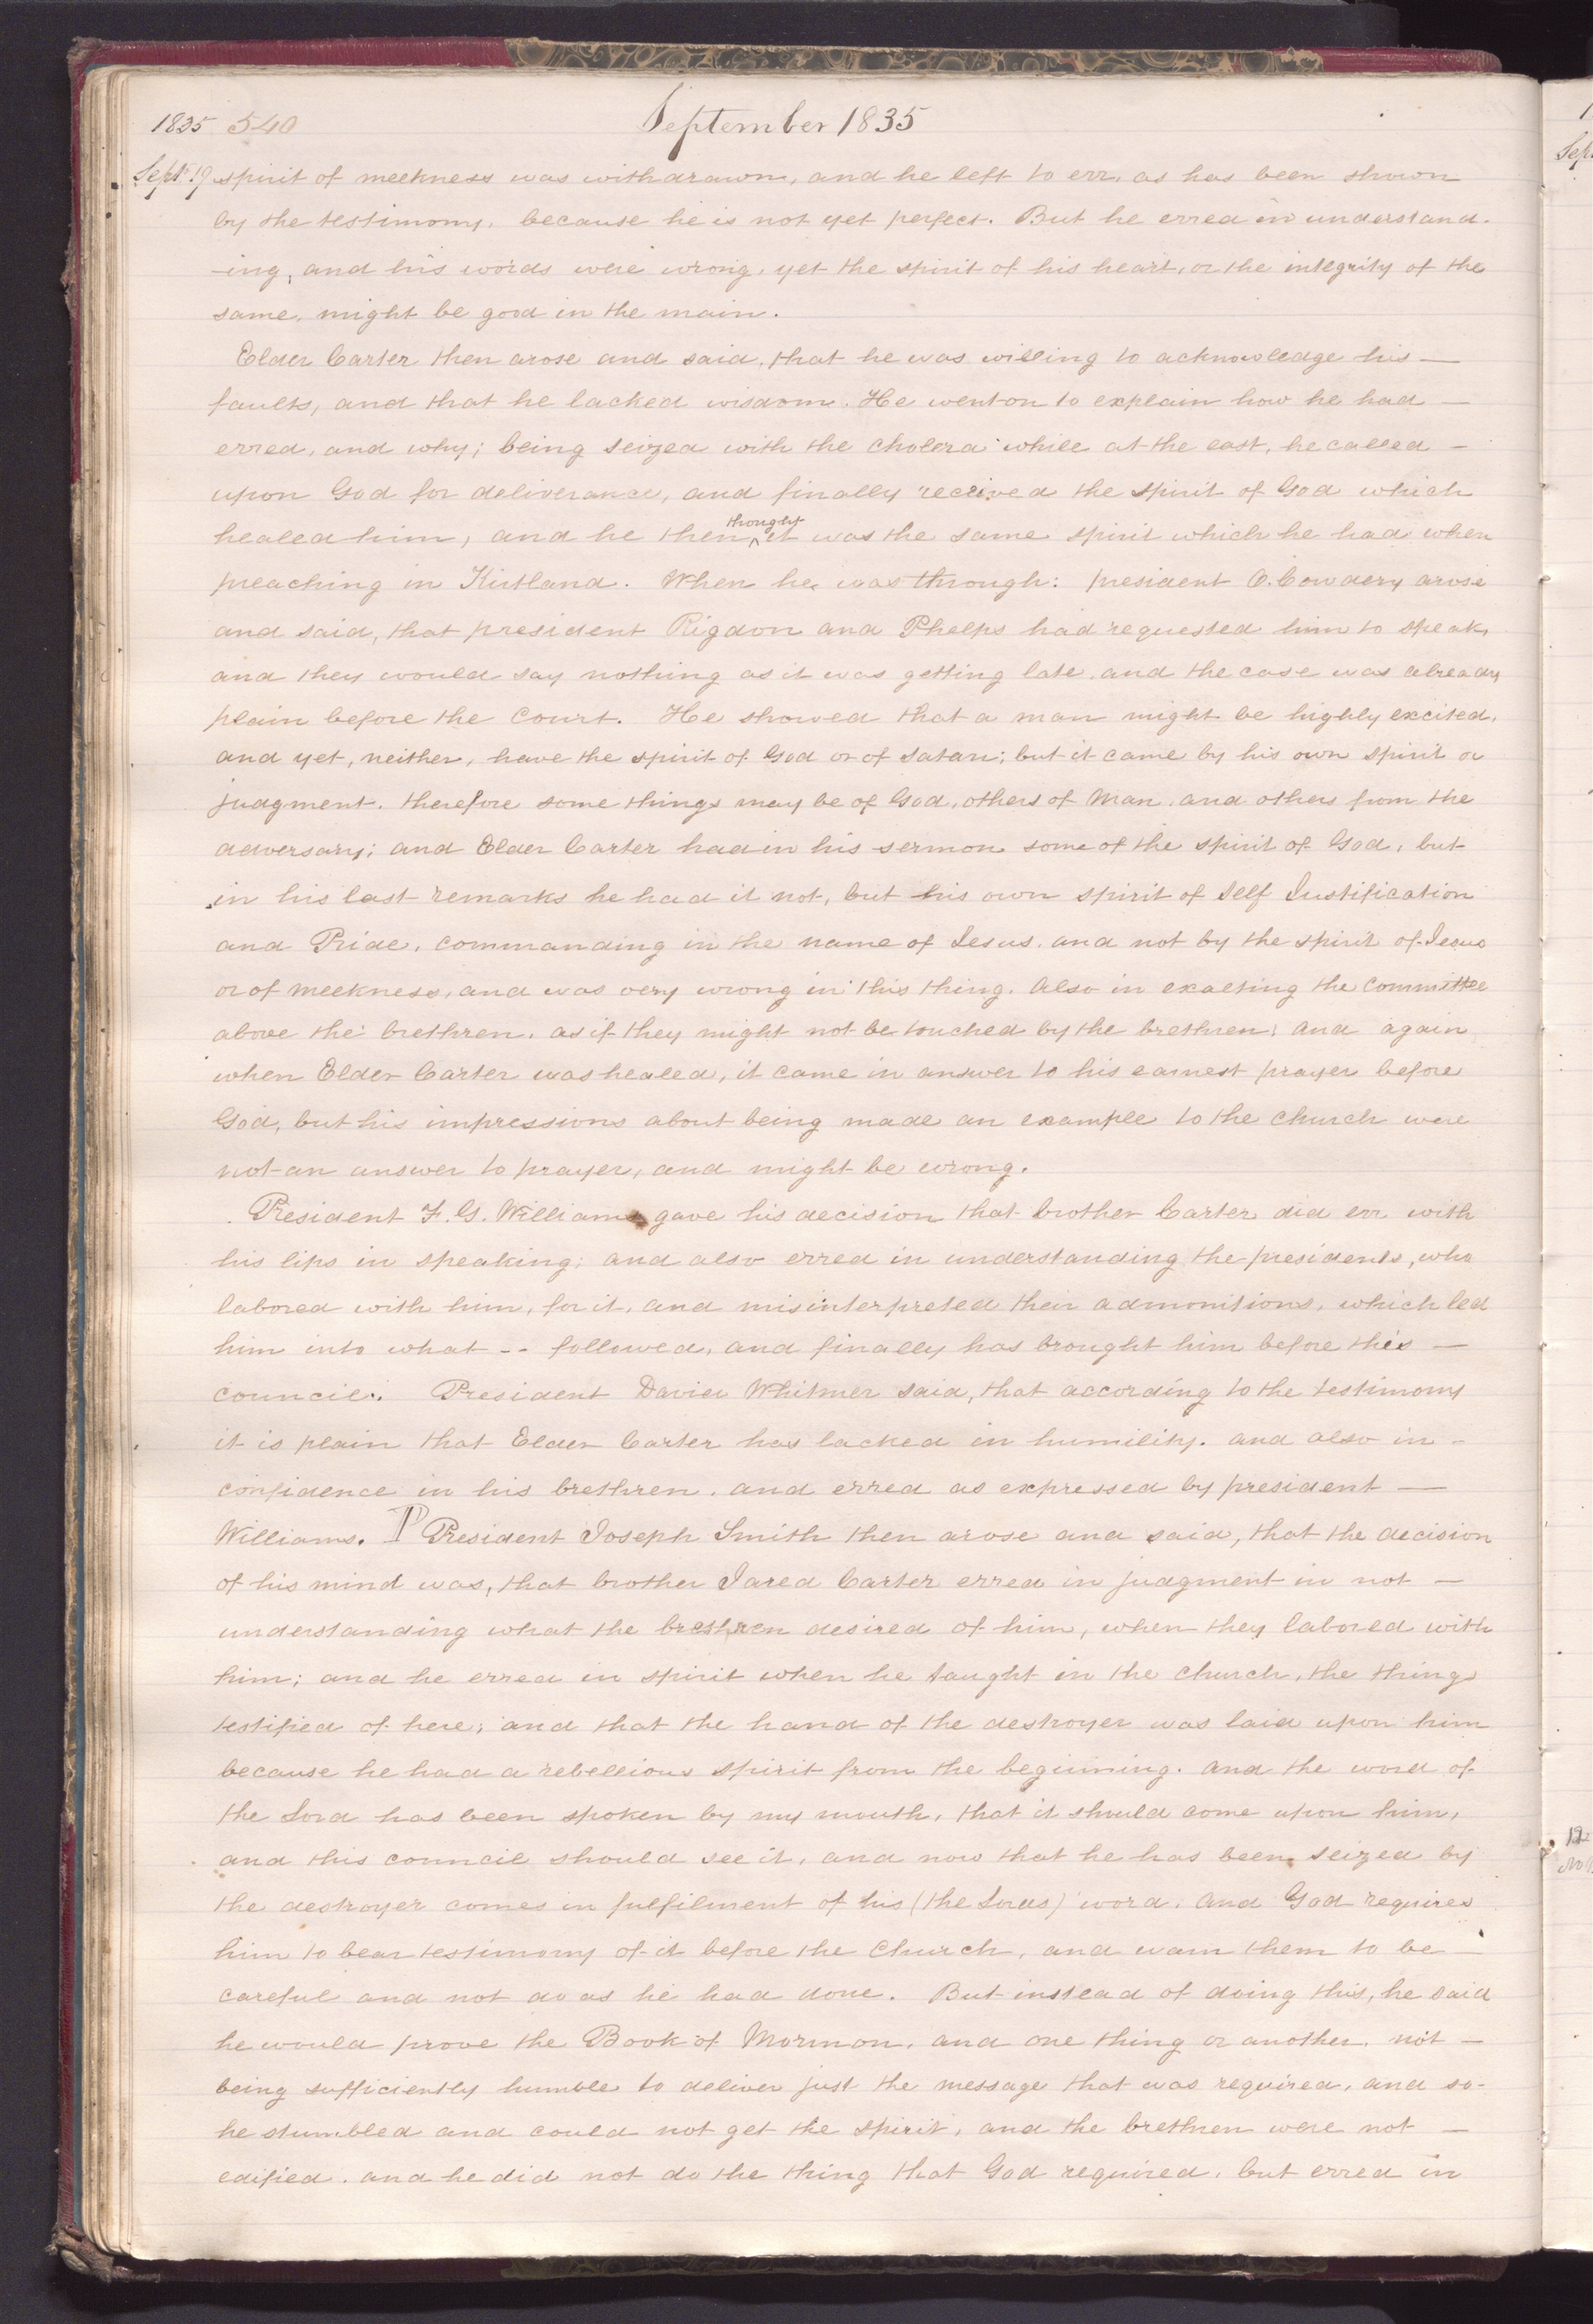 1835 540 September 1835
Sept. 19 spirit of meekness was withdrawn, and he left to err, as has been shown
by the testimony, because he is not yet perfect. But he erred in understand-
-ing, and his words were wrong, yet the spirit of his heart, or the integrity of the
same, might be good in the main.
Elder Carter then arose and said, that he was willing to acknowledge his —
faults, and that he lacked wisdom. He went on to explain how he had —
erred, and why; being seized with the cholera while at the east, he called —
upon God for deliverance, and finally received the spirit of God which
healed him, and he then ^thought it was the same spirit which he had when
preaching in Kirtland. When he was through: president O. Cowdery arose
and said, that president Rigdon and Phelps had requested him to speak,
and they would say nothing as it was getting late, and the case was already
plain before the court. He showed that a man might be highly excited,
and yet, neither, have the spirit of God or of satan; but it came by his own spirit or
judgment. therefore some things may be of God, others of Man, and others from the
adversary; and Elder Carter had in his sermon some of the spirit of God, but
in his last remarks he had it not, but his own spirit of self Justification
and Pride, commanding in the name of Jesus, and not by the spirit of Jesus
or of meekness, and was very wrong in this thing. Also in exalting the committee
above the brethren, as if they might not be touched by the brethren; and again
when Elder Carter was healed, it came in answer to his earnest prayer before
God, but his impressions about being made an example to the church were
not an answer to prayer, and might be wrong.
President F. G. Williams gave his decision that brother Carter did err with
his lips in speaking; and also erred in understanding the presidents, who
labored with him, for it, and misinterpreted their admonitions, which led
him into what -- followed, and finally has brought him before this —
council. President David Whitmer said, that according to the testimony
it is plain that Elder Carter has lacked in humility. and also in -
confidence in his brethren. and erred as expressed by president —
Williams. ¶ President Joseph Smith then arose and said, that the decision
of his mind was, that brother Jared Carter erred in judgment in not —
understanding what the brethren desired of him, when they labored with
him; and he erred in spirit when he taught in the church, the things
testified of here; and that the hand of the destroyer was laid upon him
because he had a rebellious spirit from the beginning. And the word of
the Lord has been spoken by my mouth, that it should come upon him,
and this council should see it, and now that he has been seized by
the destroyer comes in fulfilment of his (the Lords) word. And God requires
him to bear testimony of it before the Church, and warn them to be —
careful and not do as he had done. But instead of doing this, he said
he would prove the Book of Mormon, and one thing or another, not —
being sufficiently humble to deliver just the message that was required, and so-
he stumbled and could not get the spirit, and the brethren were not —
edified. and he did not do the thing that God required, but erred in